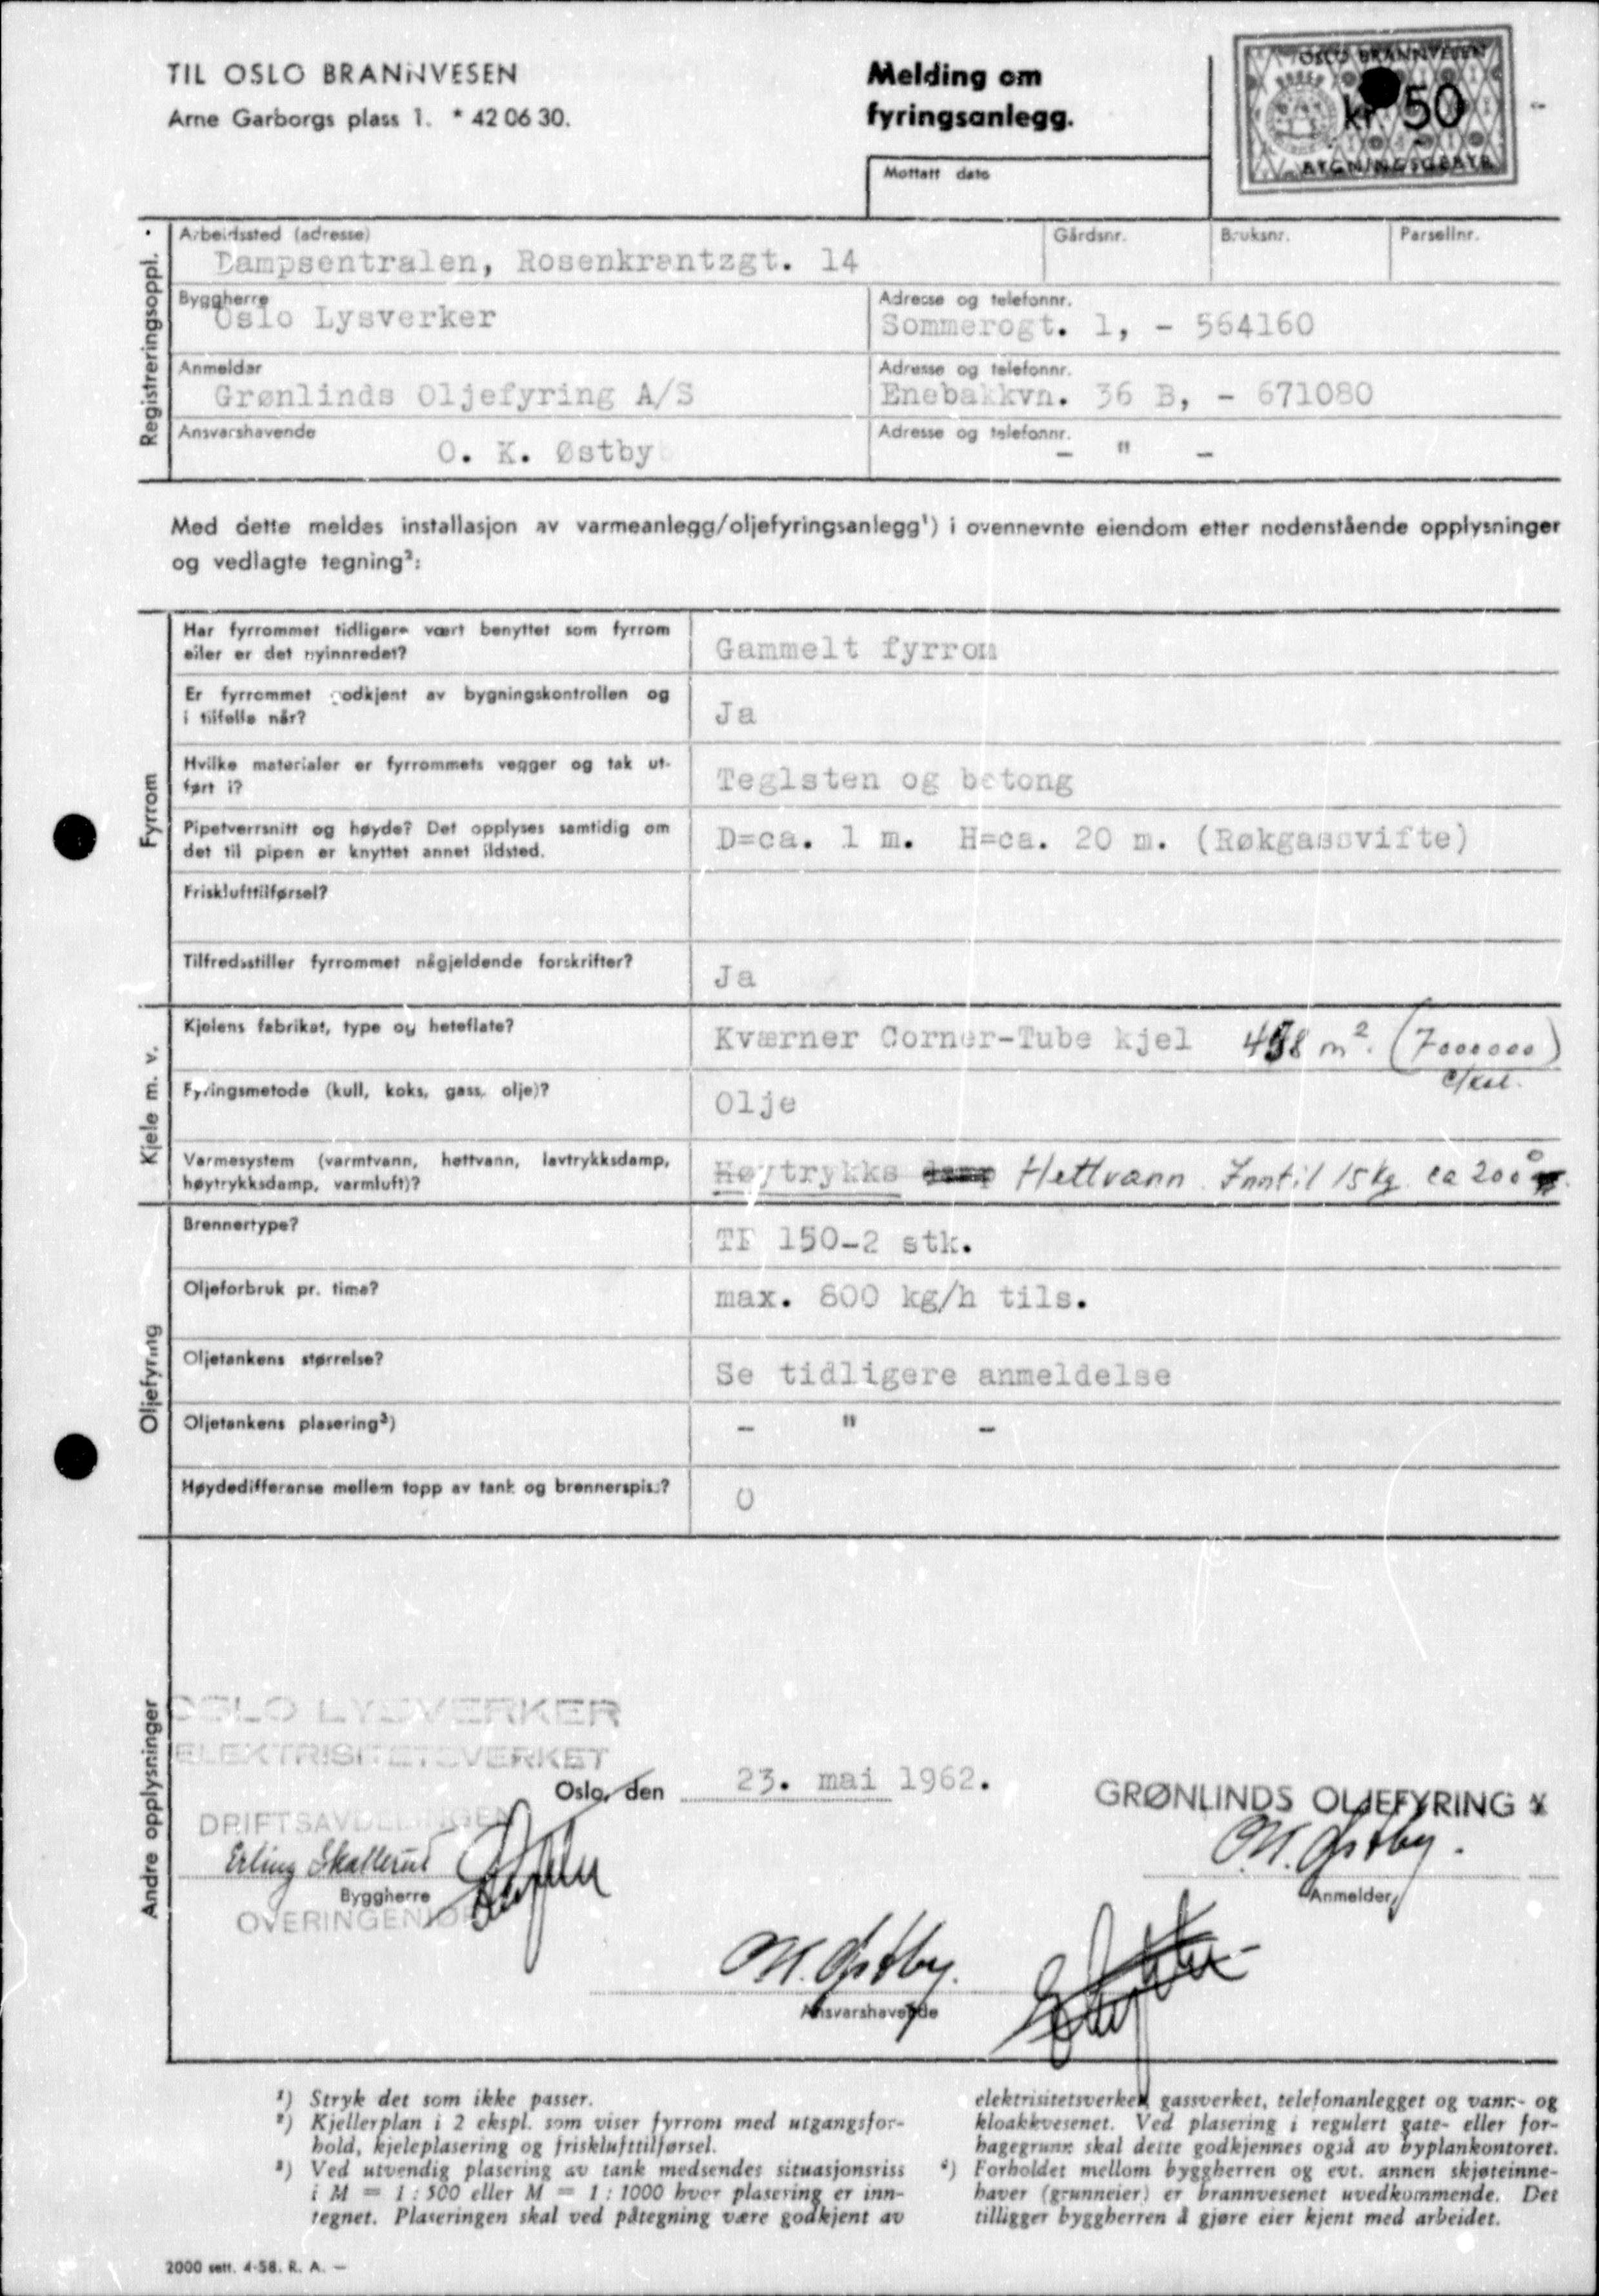 TIL OSLO BRANNVESEN
Arne Garborgs plass 1. * 42 06 30.
Melding om
fyringsanlegg.
Mottatt dato
OSLO BRANNVESEN
kr 50
Registreringsoppl.
Arbeidssted (adresse)
Dampsentralen, Rosenkrantzgt. 14
Gårdsnr.
Bruksnr.
Parsellnr.
Byggherre
Oslo Lysverker
Adresse og telefonnr.
Sommerogt. 1, - 564160
Anmelder
Grønlinds Oljefyring A/S
Adresse og telefonnr.
Enebakkvn. 36 B, - 671080
Ansvarshavende
O. K. Østby
Adresse og telefonnr.
- " -
Med dette meldes installasjon av varmeanlegg/oljefyringsanlegg¹) i ovennevnte eiendom etter nedenstående opplysninger
og vedlagte tegning²:
Fyrrom
Har fyrrommet tidligere vært benyttet som fyrrom
eller er det nyinnredet?
Gammelt fyrrom
Er fyrrommet godkjent av bygningskontrollen og
i tilfelle når?
Ja
Hvilke materialer er fyrrommets vegger og tak ut-
ført i?
Teglsten og betong
Pipetverrsnitt og høyde? Det opplyses samtidig om
det til pipen er knyttet annet ildsted.
D=ca. 1 m. H=ca. 20 m. (Røkgassvifte)
Frisklufttilførsel?
Tilfredsstiller fyrrommet någjeldende forskrifter?
Ja
Kjele m. v.
Kjelens fabrikat, type og heteflate?
Kværner Corner-Tube kjel m². (7000000)
Fyringsmetode (kull, koks, gass, olje)?
Olje
Varmesystem (varmtvann, hettvann, lavtrykksdamp,
høytrykksdamp, varmluft)?
Høytrykks damp Hettvann. Inntil 15 kg. ca 200°
Oljefyring
Brennertype?
TF 150-2 stk.
Oljeforbruk pr. time?
max. 800 kg/h tils.
Oljetankens størrelse?
Se tidligere anmeldelse
Oljetankens plasering³)
- " -
Høydedifferanse mellem topp av tank og brennerspiss?
0
Andre opplysninger
OSLO LYSVERKER
ELEKTRISITETSVERKET
Oslo, den 23. mai 1962.
GRØNLINDS OLJEFYRING
DRIFTSAVDELINGEN
Erling Skallerud
Byggherre
OVERINGENIØR
Østby.
Anmelder
Østby.
Ansvarshavende
¹) Stryk det som ikke passer.
²) Kjellerplan i 2 ekspl. som viser fyrrom med utgangsfor-
hold, kjeleplasering og frisklufttilførsel.
³) Ved utvendig plasering av tank medsendes situasjonsriss
i M = 1 : 500 eller M = 1 : 1000 hvor plasering er inn-
tegnet. Plaseringen skal ved påtegning være godkjent av
elektrisitetsverket, gassverket, telefonanlegget og vann- og
kloakkvesenet. Ved plasering i regulert gate- eller for-
hagegrunn skal dette godkjennes også av byplankontoret.
⁴) Forholdet mellom byggherren og evt. annen skjøteinne-
haver (grunneier) er brannvesenet uvedkommende. Det
tilligger byggherren å gjøre eier kjent med arbeidet.
2000 sett. 4-58. R. A. —